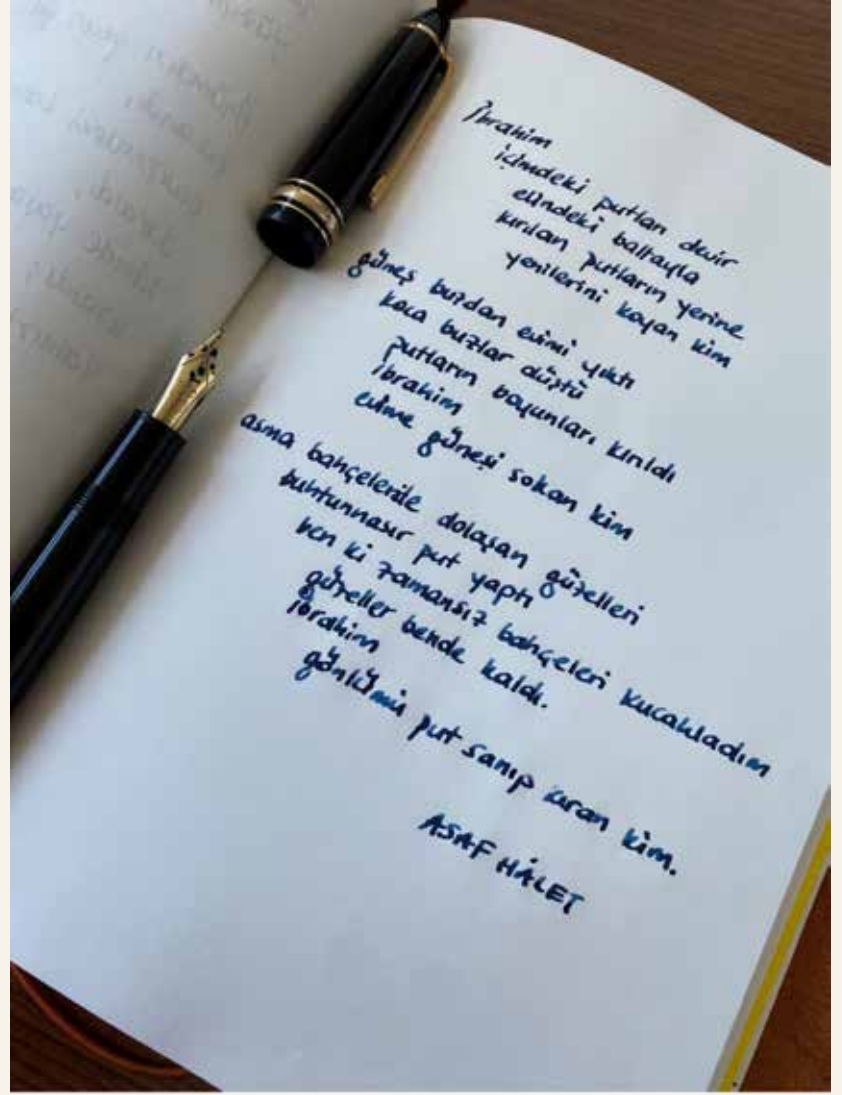 İbrahim
içimdeki putları devir
elindeki baltayla
kırılan putların yerine
yenilerini koyan kim
güneş buzdan evimi yıktı
koca buzlar düştü
putların boyunları kırıldı
ibrahim
evime güneşi sokan kim
asma bahçelerde dolaşan güzelleri
buhtunnasır put yaptı
ben ki zamansız bahçeleri kucakladım
güzeller bende kaldı.
ibrahim
gönlümü put sanıp kıran kim.
ASAF HÂLET